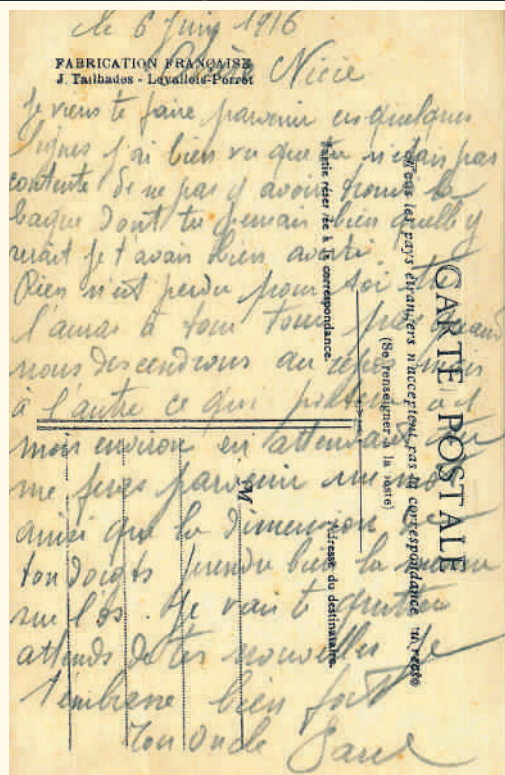 le 6 Juin 1916
FABRICATION FRANÇAISE
J. Tailhades - Levallois-Perret
Chère Nicie
Je viens te faire parvenir ces quelques
lignes j'ai bien vu que tu n'étais pas
contente de ne pas y avoir trouvé la
bague dont tu pensais bien quelle y
serait je t'avais bien averti
Rien n'est perdu pour toi tu
l'auras à ton tour quand
nous descendrons au repos mais
à l'autre ce qui
mois environ en attendant tu
me feras parvenir
ainsi que la dimension de
ton doigts prendre bien la mesure
sur l'os. Je vais te quitter
attends de tes nouvelles Je
t'embrasse bien fort
Ton Oncle Paul
CARTE POSTALE
Tous les pays étrangers n'acceptent pas la correspondance au recto
(Se renseigner à la Poste)
Partie réservée à la correspondance.
Adresse du destinataire.
M